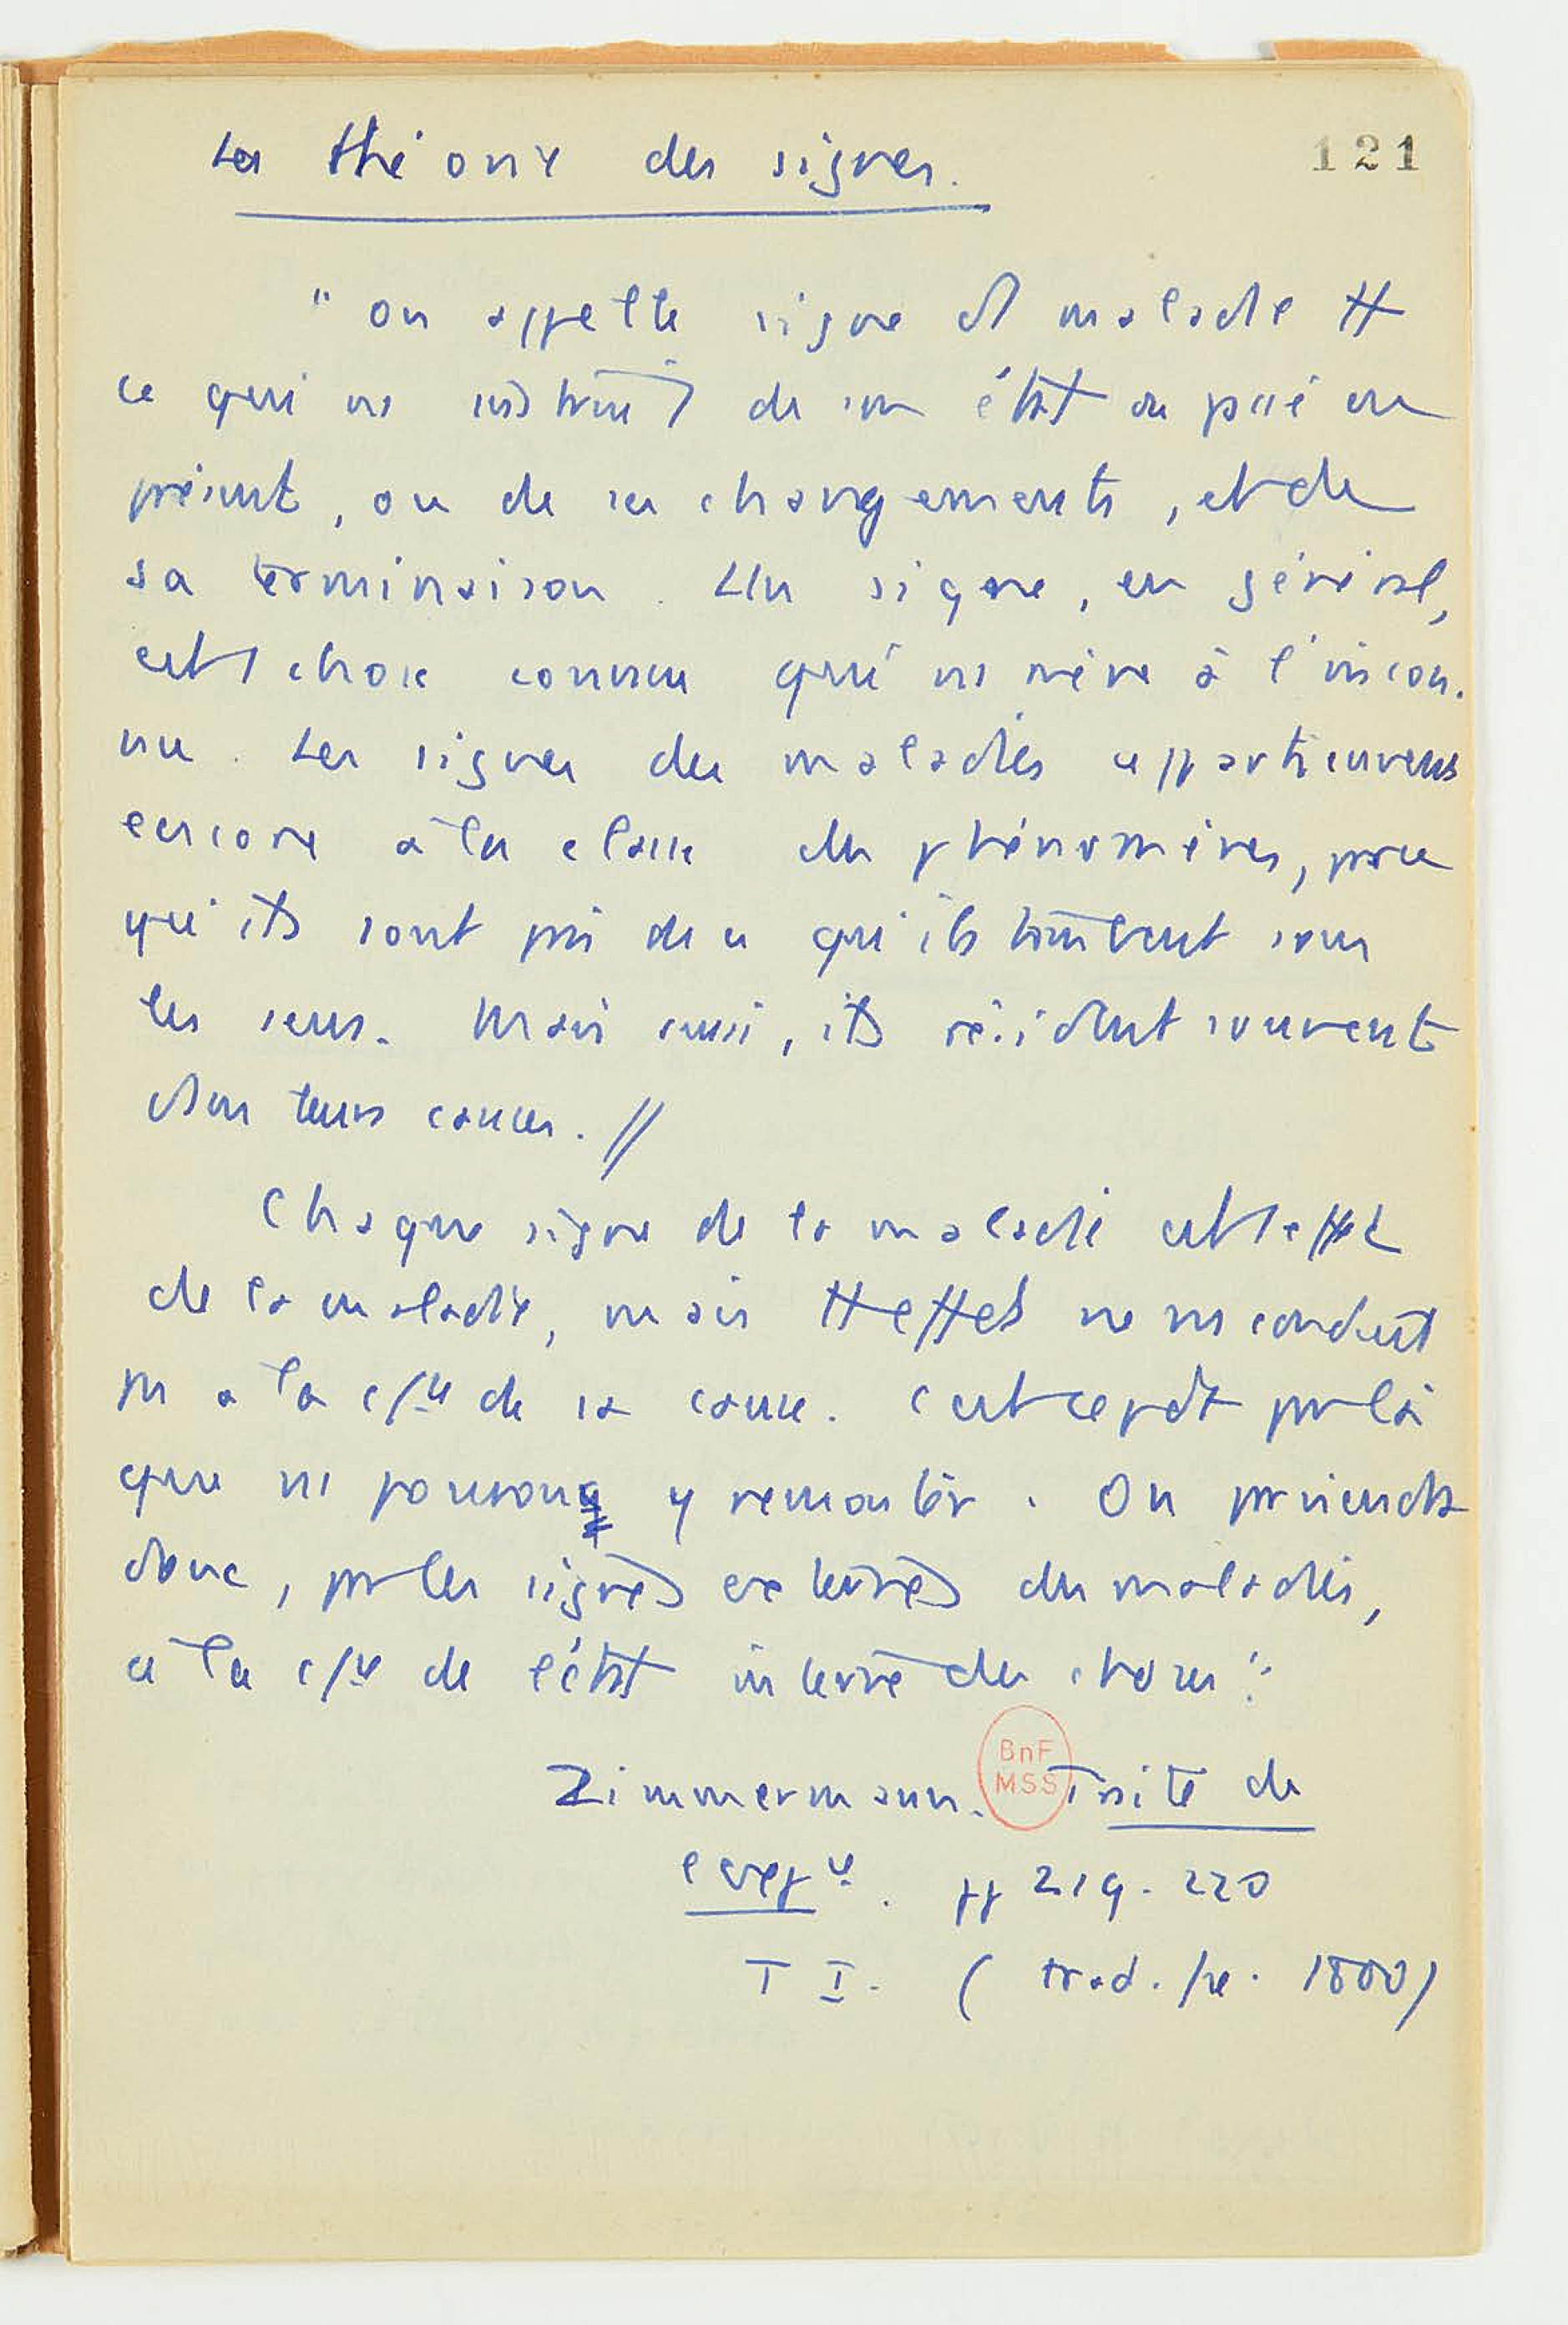 La théorie des signes.
121
"On appelle signe d' maladie tt
ce qui ns instruit de son état ou passé ou
présent, ou de ses changements, et de
sa terminaison. Un signe, en général,
est 1 chose connue qui ns mène à l'incon-
nue. Les signes des maladies appartiennent
encore à la classe des phénomènes, parce
qu'ils sont pris de ce qu'ils tombent sous
les sens. Mais aussi, ils résident souvent
dans leurs causes. //
Chaque signe de la maladie est 1 effet
de la maladie, mais tt effet ne ns conduit
pas à la c/ce de sa cause. C'est cepdt par là
que ns pouvons y remonter. On parviendra
donc, par les signes externes des maladies,
à la c/ce de l'état interne des choses".
Zimmermann. Traité de
BnF
MSS
l'expce. pp 219-220
T I. (trad. fse. 1800)